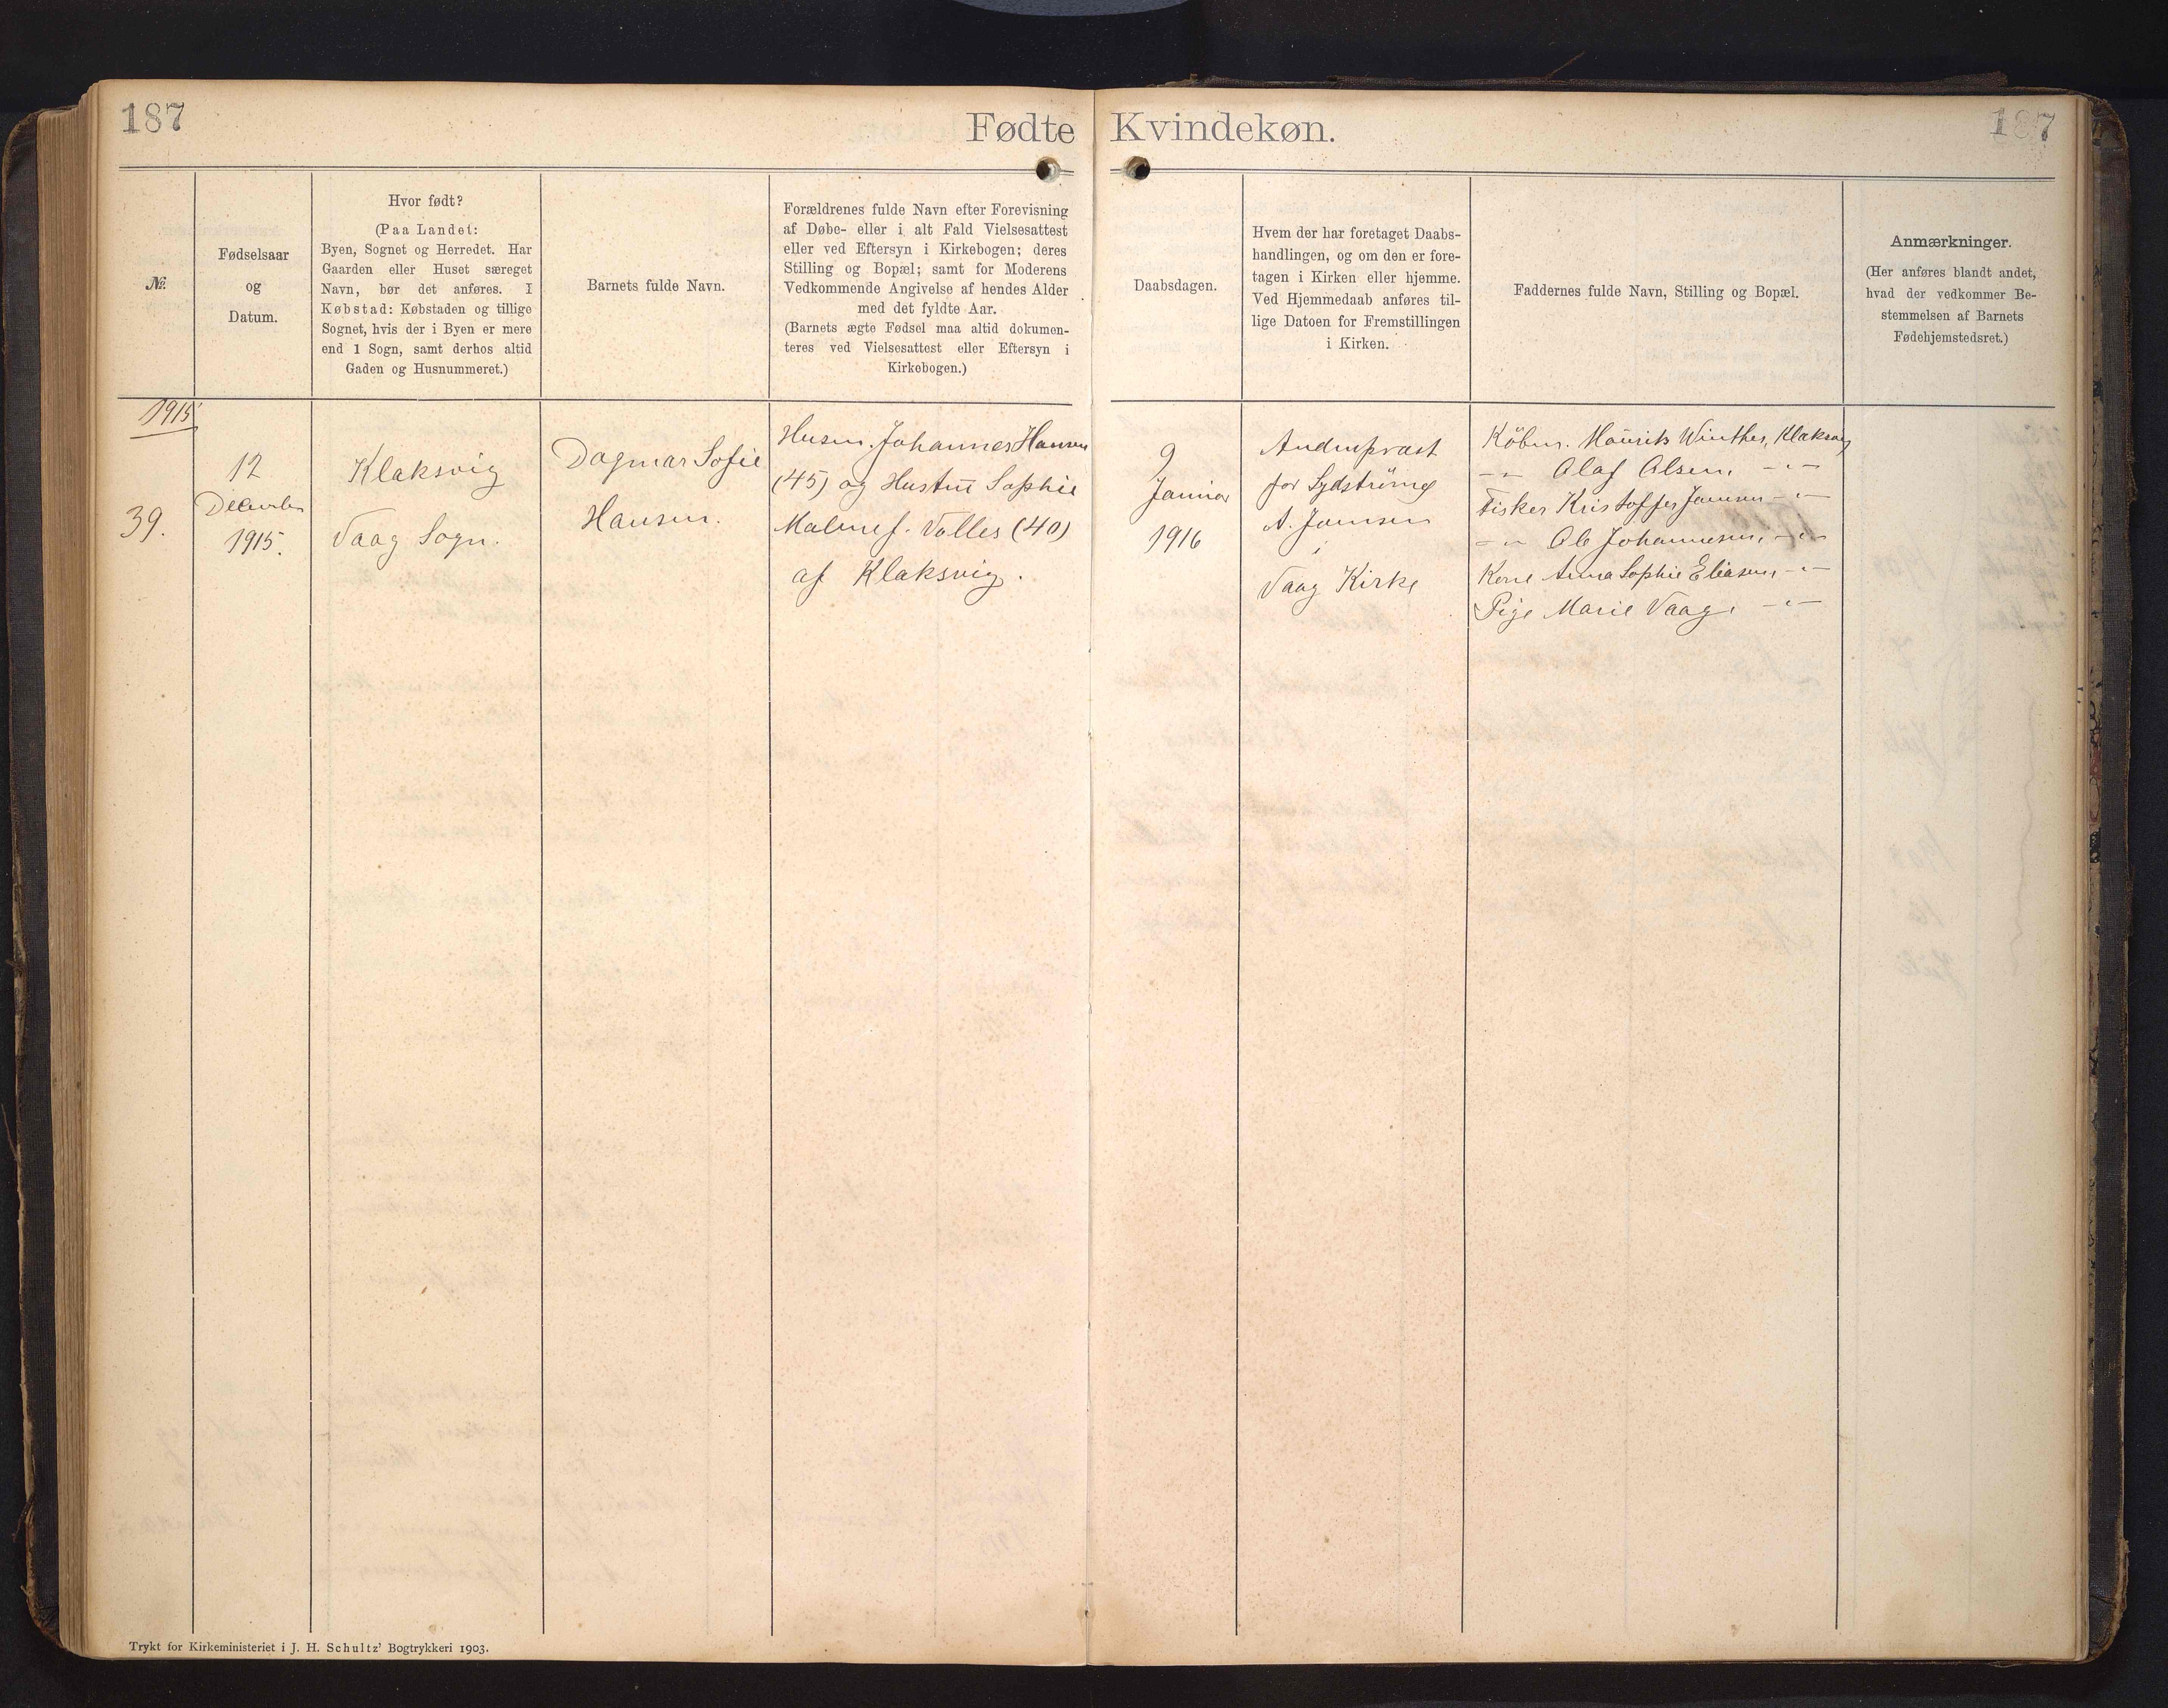 187
Fødte Kvindekøn.
187
№
Fødselsaar
og
Datum.
Hvor født?
(Paa Landet:
Byen, Sognet og Herredet. Har
Gaarden eller Huset særeget
Navn, bør det anføres. I
Købstad: Købstaden og tillige
Sognet, hvis der i Byen er mere
end 1 Sogn, samt derhos altid
Gaden og Husnummeret.)
Barnets fulde Navn.
Forældrenes fulde Navn efter Forevisning
af Døbe- eller i alt Fald Vielsesattest
eller ved Eftersyn i Kirkebogen; deres
Stilling og Bopæl; samt for Moderens
Vedkommende Angivelse af hendes Alder
med det fyldte Aar.
(Barnets ægte Fødsel maa altid dokumen-
teres ved Vielsesattest eller Eftersyn i
Kirkebogen.)
Daabsdagen.
Hvem der har foretaget Daabs-
handlingen, og om den er fore-
tagen i Kirken eller hjemme.
Ved Hjemmedaab anføres til-
lige Datoen for Fremstillingen
i Kirken.
Faddernes fulde Navn, Stilling og Bopæl.
Anmærkninger.
(Her anføres blandt andet,
hvad der vedkommer Be-
stemmelsen af Barnets
Fødehjemstedsret.)
1915
39.
12
December
1915.
Klaksvig
Vaag Sogn.
Dagmar Sofie
Hansen.
Husm. Johannes Hansen
(45) og Hustru Sophie
Malene f. Volles (40)
af Klaksvig.
9
Januar
1916
Andenpræst
for Sydströmø
A. Joensen
i
Vaag Kirke
Köbm. Maurits Winther, Klaksvig
-"- Olaf Olsen, -"-
Fisker Kristoffer Joensen -"-
-"- Ole Johannesen, -"-
Kone Anna Sophie Eliasen, -"-
Pige Marie Vaag, -"-
Trykt for Kirkeministeriet i J. H. Schultz' Bogtrykkeri 1903.